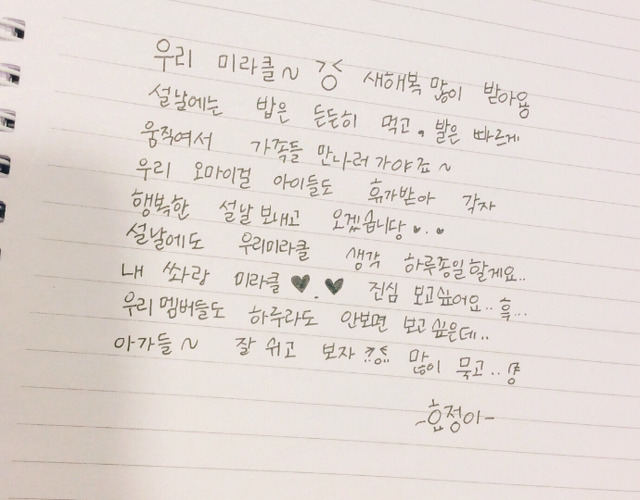 우리 미라클~ 새해복 많이 받아용
설날에는 밥은 든든히 먹고, 발은 빠르게
움직여서 가족들 만나러 가야죠~
우리 오마이걸 아이들도 휴가받아 각자
행복한 설날 보내고 오겠습니당 ♥.♥
설날에도 우리미라클 생각 하루종일 할게요..
내 쏴랑 미라클 ♥.♥ 진심 보고싶어요.. 흑...
우리 멤버들도 하루라도 안보면 보고 싶은데..
아가들~ 잘 쉬고 보자 많이 묵고..
-효정이-